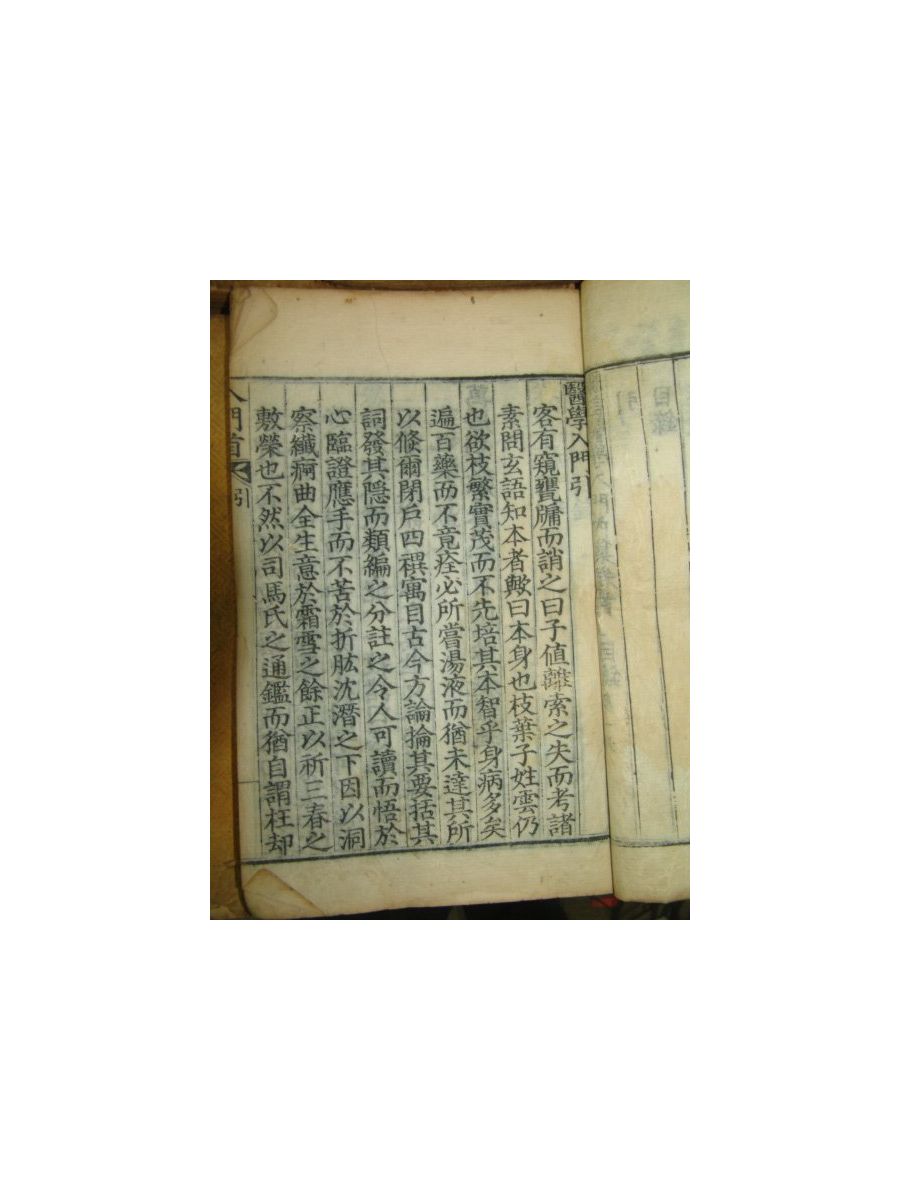 醫學入門引
客有窺甕牖而誚之曰子值離索之失而考諸
素問玄語知本者歟曰本身也枝葉子姓雲仍
也欲枝繁實茂而不先培其本智乎身病多矣
遍百藥而不竟痊必所嘗湯液而猶未達其所
以倐爾閉戶四禩寓目古今方論掄其要括其
詞發其隱而類編之分註之令人可讀而悟於
心臨證應手而不苦於折肱沈潛之下因以洞
察纖痾曲全生意於霜雪之餘正以祈三春之
敷榮也不然以司馬氏之通鑑而猶自謂枉却
入門首 引
目錄